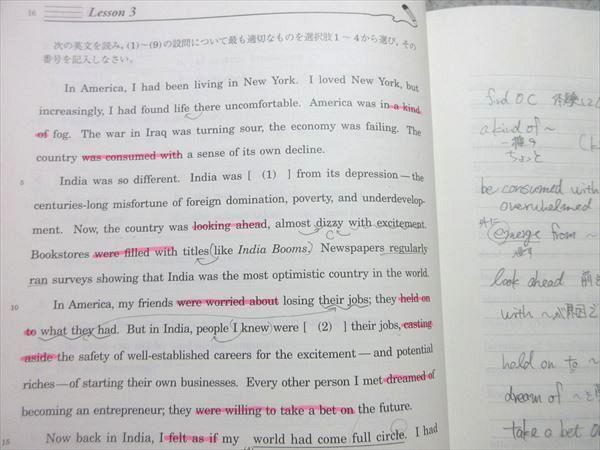 16 Lesson 3
次の英文を読み，(1)〜(9)の設問について最も適切なものを選択肢1〜4から選び，その
番号を記入しなさい。
In America, I had been living in New York. I loved New York, but
increasingly, I had found life there uncomfortable. America was in a kind
of fog. The war in Iraq was turning sour, the economy was failing. The
country was consumed with a sense of its own decline.
5 India was so different. India was [ (1) ] from its depression—the
centuries-long misfortune of foreign domination, poverty, and underdevelop-
ment. Now, the country was looking ahead, almost dizzy with excitement.
C
Bookstores were filled with titles (like India Booms.) Newspapers regularly
ran surveys showing that India was the most optimistic country in the world.
10 In America, my friends were worried about losing their jobs; they held on
to what they had. But in India, people I knew were [ (2) ] their jobs, casting
aside the safety of well-established careers for the excitement—and potential
riches—of starting their own businesses. Every other person I met dreamed of
becoming an entrepreneur; they were willing to take a bet on the future.
15 Now back in India, I felt as if my world had come full circle. I had
find O C
a kind of 〜
一種の
ちょっと
be consumed with
overwhelmed
emerge from 〜
look ahead 前
with 〜が原因で
held on to 〜
dream of 〜
take a bet on